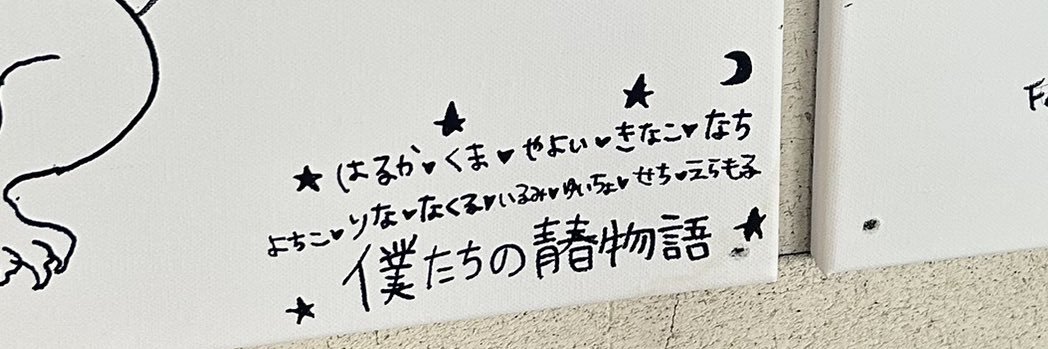 ★はるか♥くま♥やよい♥きなこ♥なち
よちこ♥りな♥なくる♥いるみ♥ゆいちょ♥せち♥えらもる
僕たちの青春物語